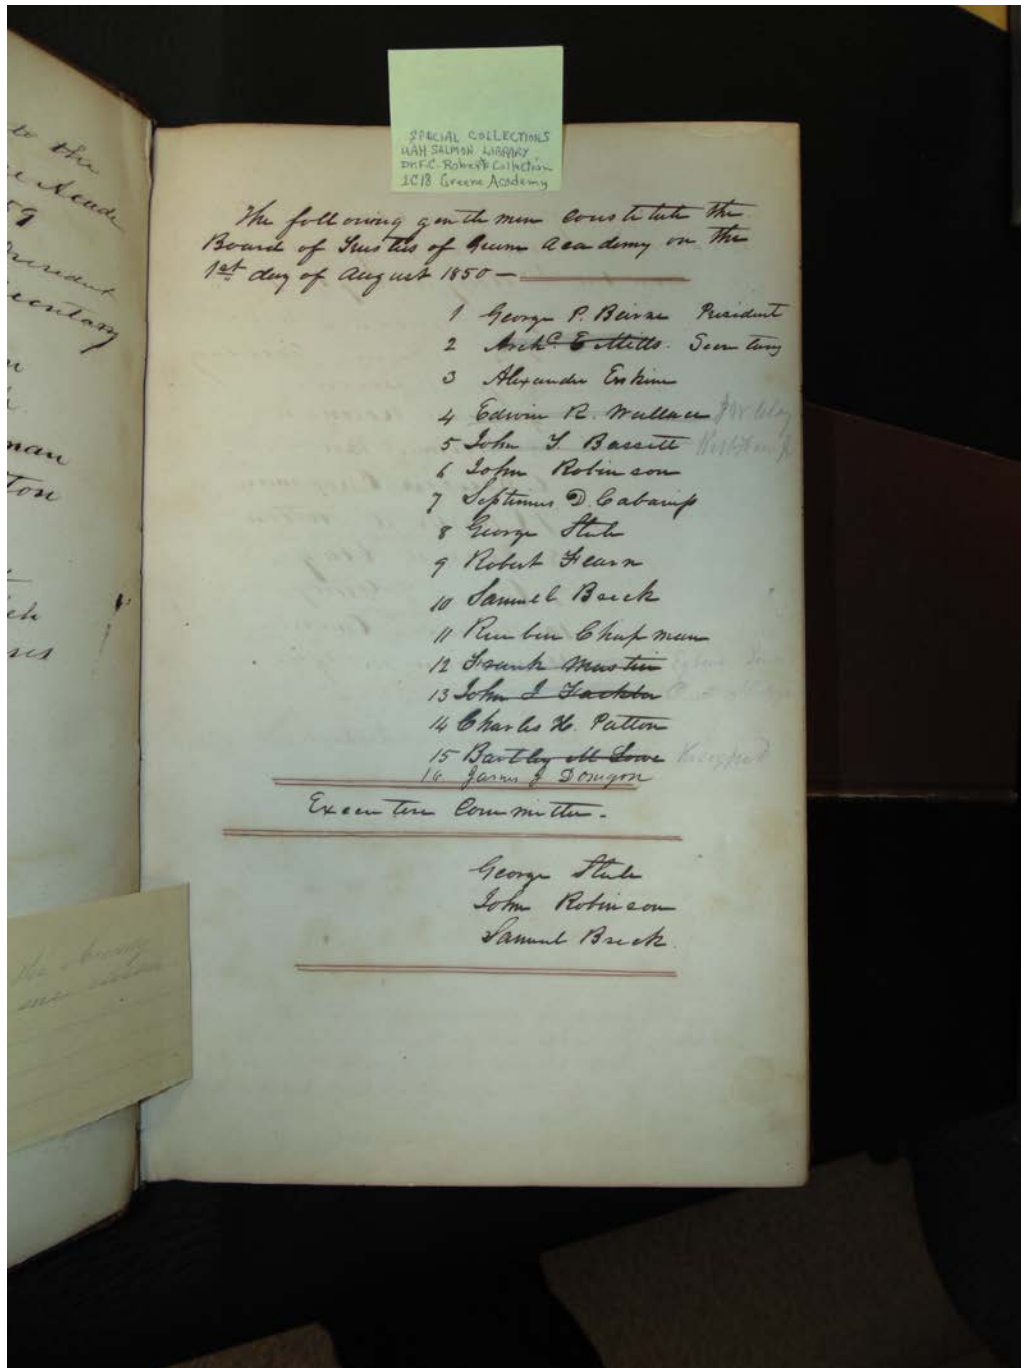 to the
Acade
59
President
Secretary
man
ton
SPECIAL COLLECTIONS
UAH SALMON LIBRARY
Dr. F.C. Roberts Collection
1C18 Greene Academy
The following gentlemen constitute the
Board of Trustees of Green Academy on the
1st day of August 1850 —
1 George P. Beirne President
2 Archd. E Mills. Secretary
3 Alexander Erskine
4 Edwin R. Wallace J W Clay
5 John Y. Bassett
6 John Robinson
7 Septimus D. Cabaniss
8 George Steele
9 Robert Fearn
10 Samuel Breck
11 Reuben Chapman
12 Frank Mastin
13 John J Fackler
14 Charles H. Patton
15 Bartley M Lowe
16 James J Donegan
Executive Committee.
George Steele
John Robinson
Samuel Breck.